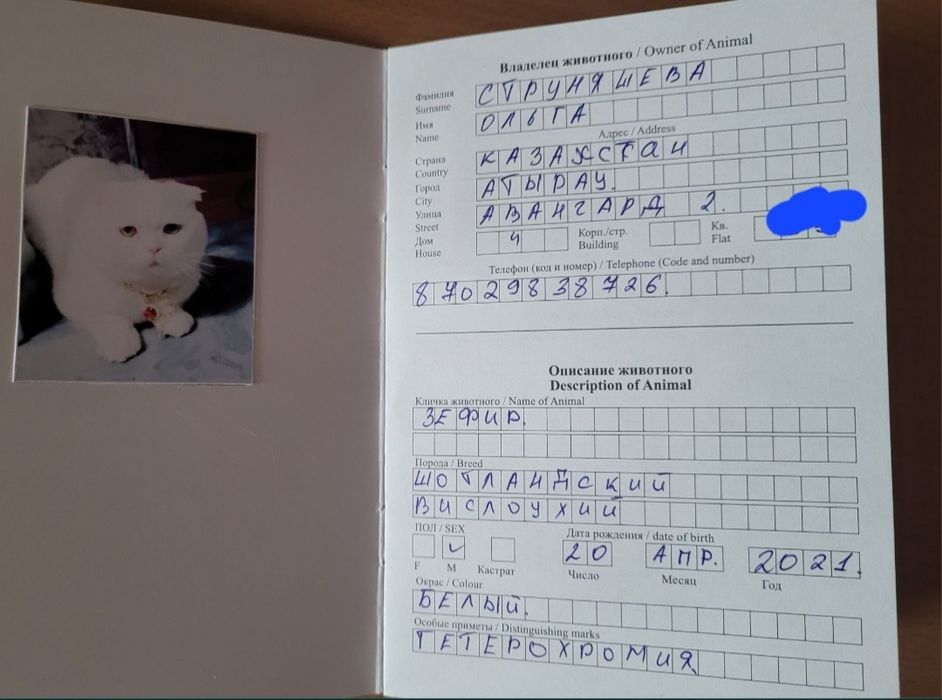 Владелец животного / Owner of Animal
Фамилия
Surname
СТРУНЯШЕВА
Имя
Name
ОЛЬГА
Адрес / Address
Страна
Country
КАЗАХСТАН
Город
City
АТЫРАУ.
Улица
Street
АВАНГАРД 2.
Дом
House
4
Корп./стр.
Building
Кв.
Flat
Телефон (код и номер) / Telephone (Code and number)
87029838726.
Описание животного
Description of Animal
Кличка животного / Name of Animal
ЗЕФИР.
Порода / Breed
ШОТЛАНДСКИЙ
ВИСЛОУХИЙ
ПОЛ / SEX
Дата рождения / date of birth
20 АПР. 2021.
F M Кастрат Число Месяц Год
Окрас / Colour
БЕЛЫЙ.
Особые приметы / Distinguishing marks
ГЕТЕРОХРОМИЯ